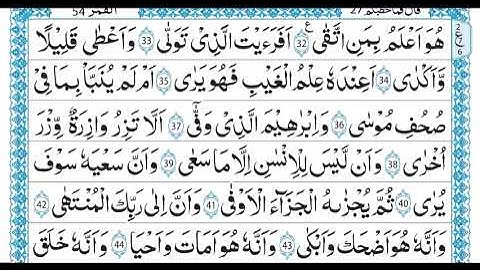 قال فما خطبکم 27 القمر 54
هُوَ اَعْلَمُ بِمَنِ اتَّقٰى 32 ع اَفَرَءَيْتَ الَّذِىْ تَوَلّٰى 33 وَاَعْطٰى قَلِيْلًا
وَّاَكْدٰى 34 اَعِنْدَهٗ عِلْمُ الْغَيْبِ فَهُوَ يَرٰى 35 اَمْ لَمْ يُنَبَّاْ بِمَا فِىْ
صُحُفِ مُوْسٰى 36 وَاِبْرٰهِيْمَ الَّذِىْ وَفّٰٓى 37 اَلَّا تَزِرُ وَازِرَةٌ وِّزْرَ
اُخْرٰى 38 وَاَنْ لَّيْسَ لِلْاِنْسٰنِ اِلَّا مَا سَعٰى 39 وَاَنَّ سَعْيَهٗ سَوْفَ
يُرٰى 40 ثُمَّ يُجْزٰٮهُ الْجَزَآءَ الْاَوْفٰى 41 وَاَنَّ اِلٰى رَبِّكَ الْمُنْتَهٰى 42
وَاَنَّهٗ هُوَ اَضْحَكَ وَاَبْكٰى 43 وَاَنَّهٗ هُوَ اَمَاتَ وَاَحْيَا 44 وَاَنَّهٗ خَلَقَ